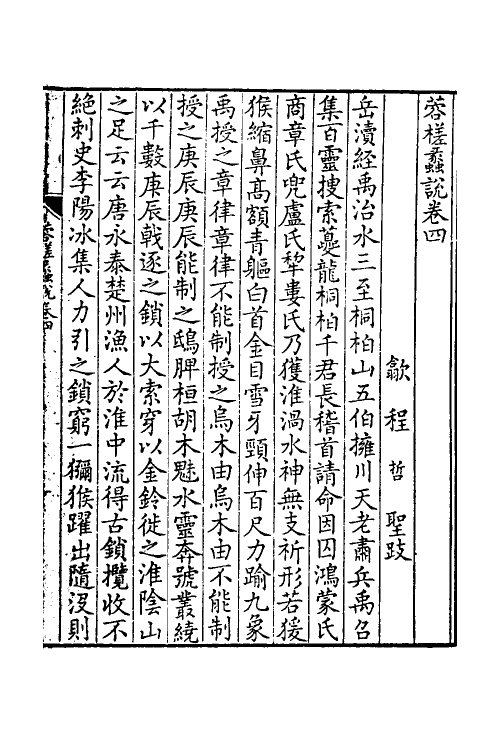 蓉槎蠡說卷四
歙 程 哲 聖跂
岳瀆經禹治水三至桐柏山五伯擁川天老肅兵禹召
集百靈搜索夔龍桐柏千君長稽首請命因囚鴻蒙氏
商章氏兜盧氏犂婁氏乃獲淮渦水神無支祈形若猨
猴縮鼻髙額青軀白首金目雪牙頸伸百尺力踰九象
禹授之章律章律不能制授之烏木由烏木由不能制
授之庚辰庚辰能制之鴟脾桓胡木魅水靈奔號叢繞
以千數庚辰戟逐之鎖以大索穿以金鈴徙之淮陰山
之足云云唐永泰楚州漁人於淮中流得古鎖攬收不
絶刺史李陽冰集人力引之鎖窮一獼猴躍出隨沒則
蓉槎蠡說卷四